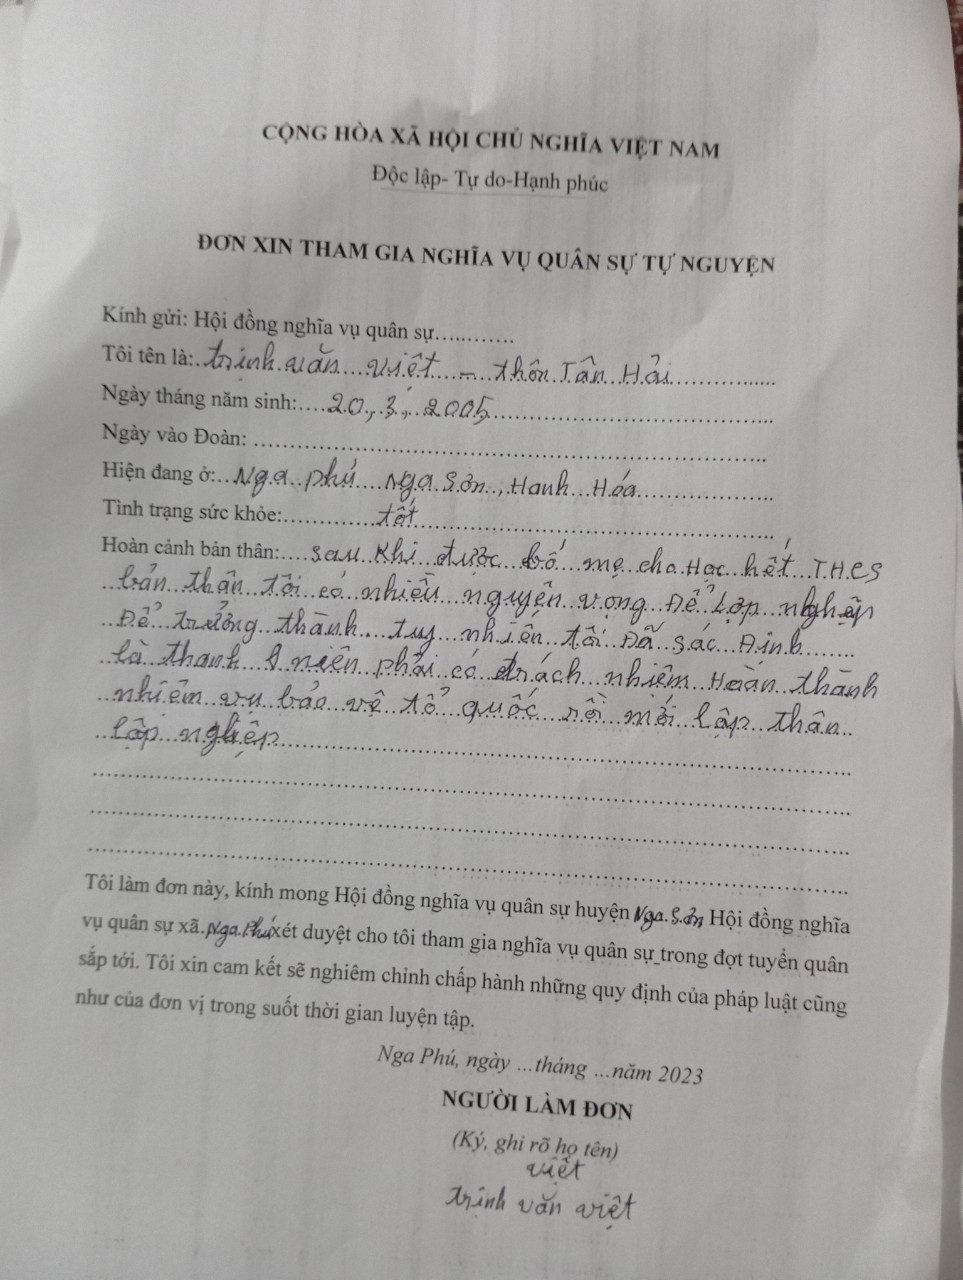 CỘNG HÒA XÃ HỘI CHỦ NGHĨA VIỆT NAM
Độc lập- Tự do-Hạnh phúc
ĐƠN XIN THAM GIA NGHĨA VỤ QUÂN SỰ TỰ NGUYỆN
Kính gửi: Hội đồng nghĩa vụ quân sự.............
Tôi tên là: trịnh văn việt – thôn Tân Hải
Ngày tháng năm sinh: 20, 3, 2005
Ngày vào Đoàn: ........................
Hiện đang ở: Nga phú Nga Sơn, Hanh Hóa
Tình trạng sức khỏe: tốt
Hoàn cảnh bản thân: sau khi được bố mẹ cho Học hết T.H.C.S
bản thân tôi có nhiều nguyện vọng Để Lợp nghệp
Để trưởng thành tuy nhiên tôi Đã sác Định
là thanh niên phải có trách nhiệm Hoàn thành
nhiệm vụ bảo vệ tổ quốc rồi mới lập thân
lập nghiệp
Tôi làm đơn này, kính mong Hội đồng nghĩa vụ quân sự huyện Nga Sơn Hội đồng nghĩa
vụ quân sự xã Nga Phú xét duyệt cho tôi tham gia nghĩa vụ quân sự trong đợt tuyển quân
sắp tới. Tôi xin cam kết sẽ nghiêm chỉnh chấp hành những quy định của pháp luật cũng
như của đơn vị trong suốt thời gian luyện tập.
Nga Phú, ngày ...tháng ...năm 2023
NGƯỜI LÀM ĐƠN
(Ký, ghi rõ họ tên)
việt
trịnh văn việt